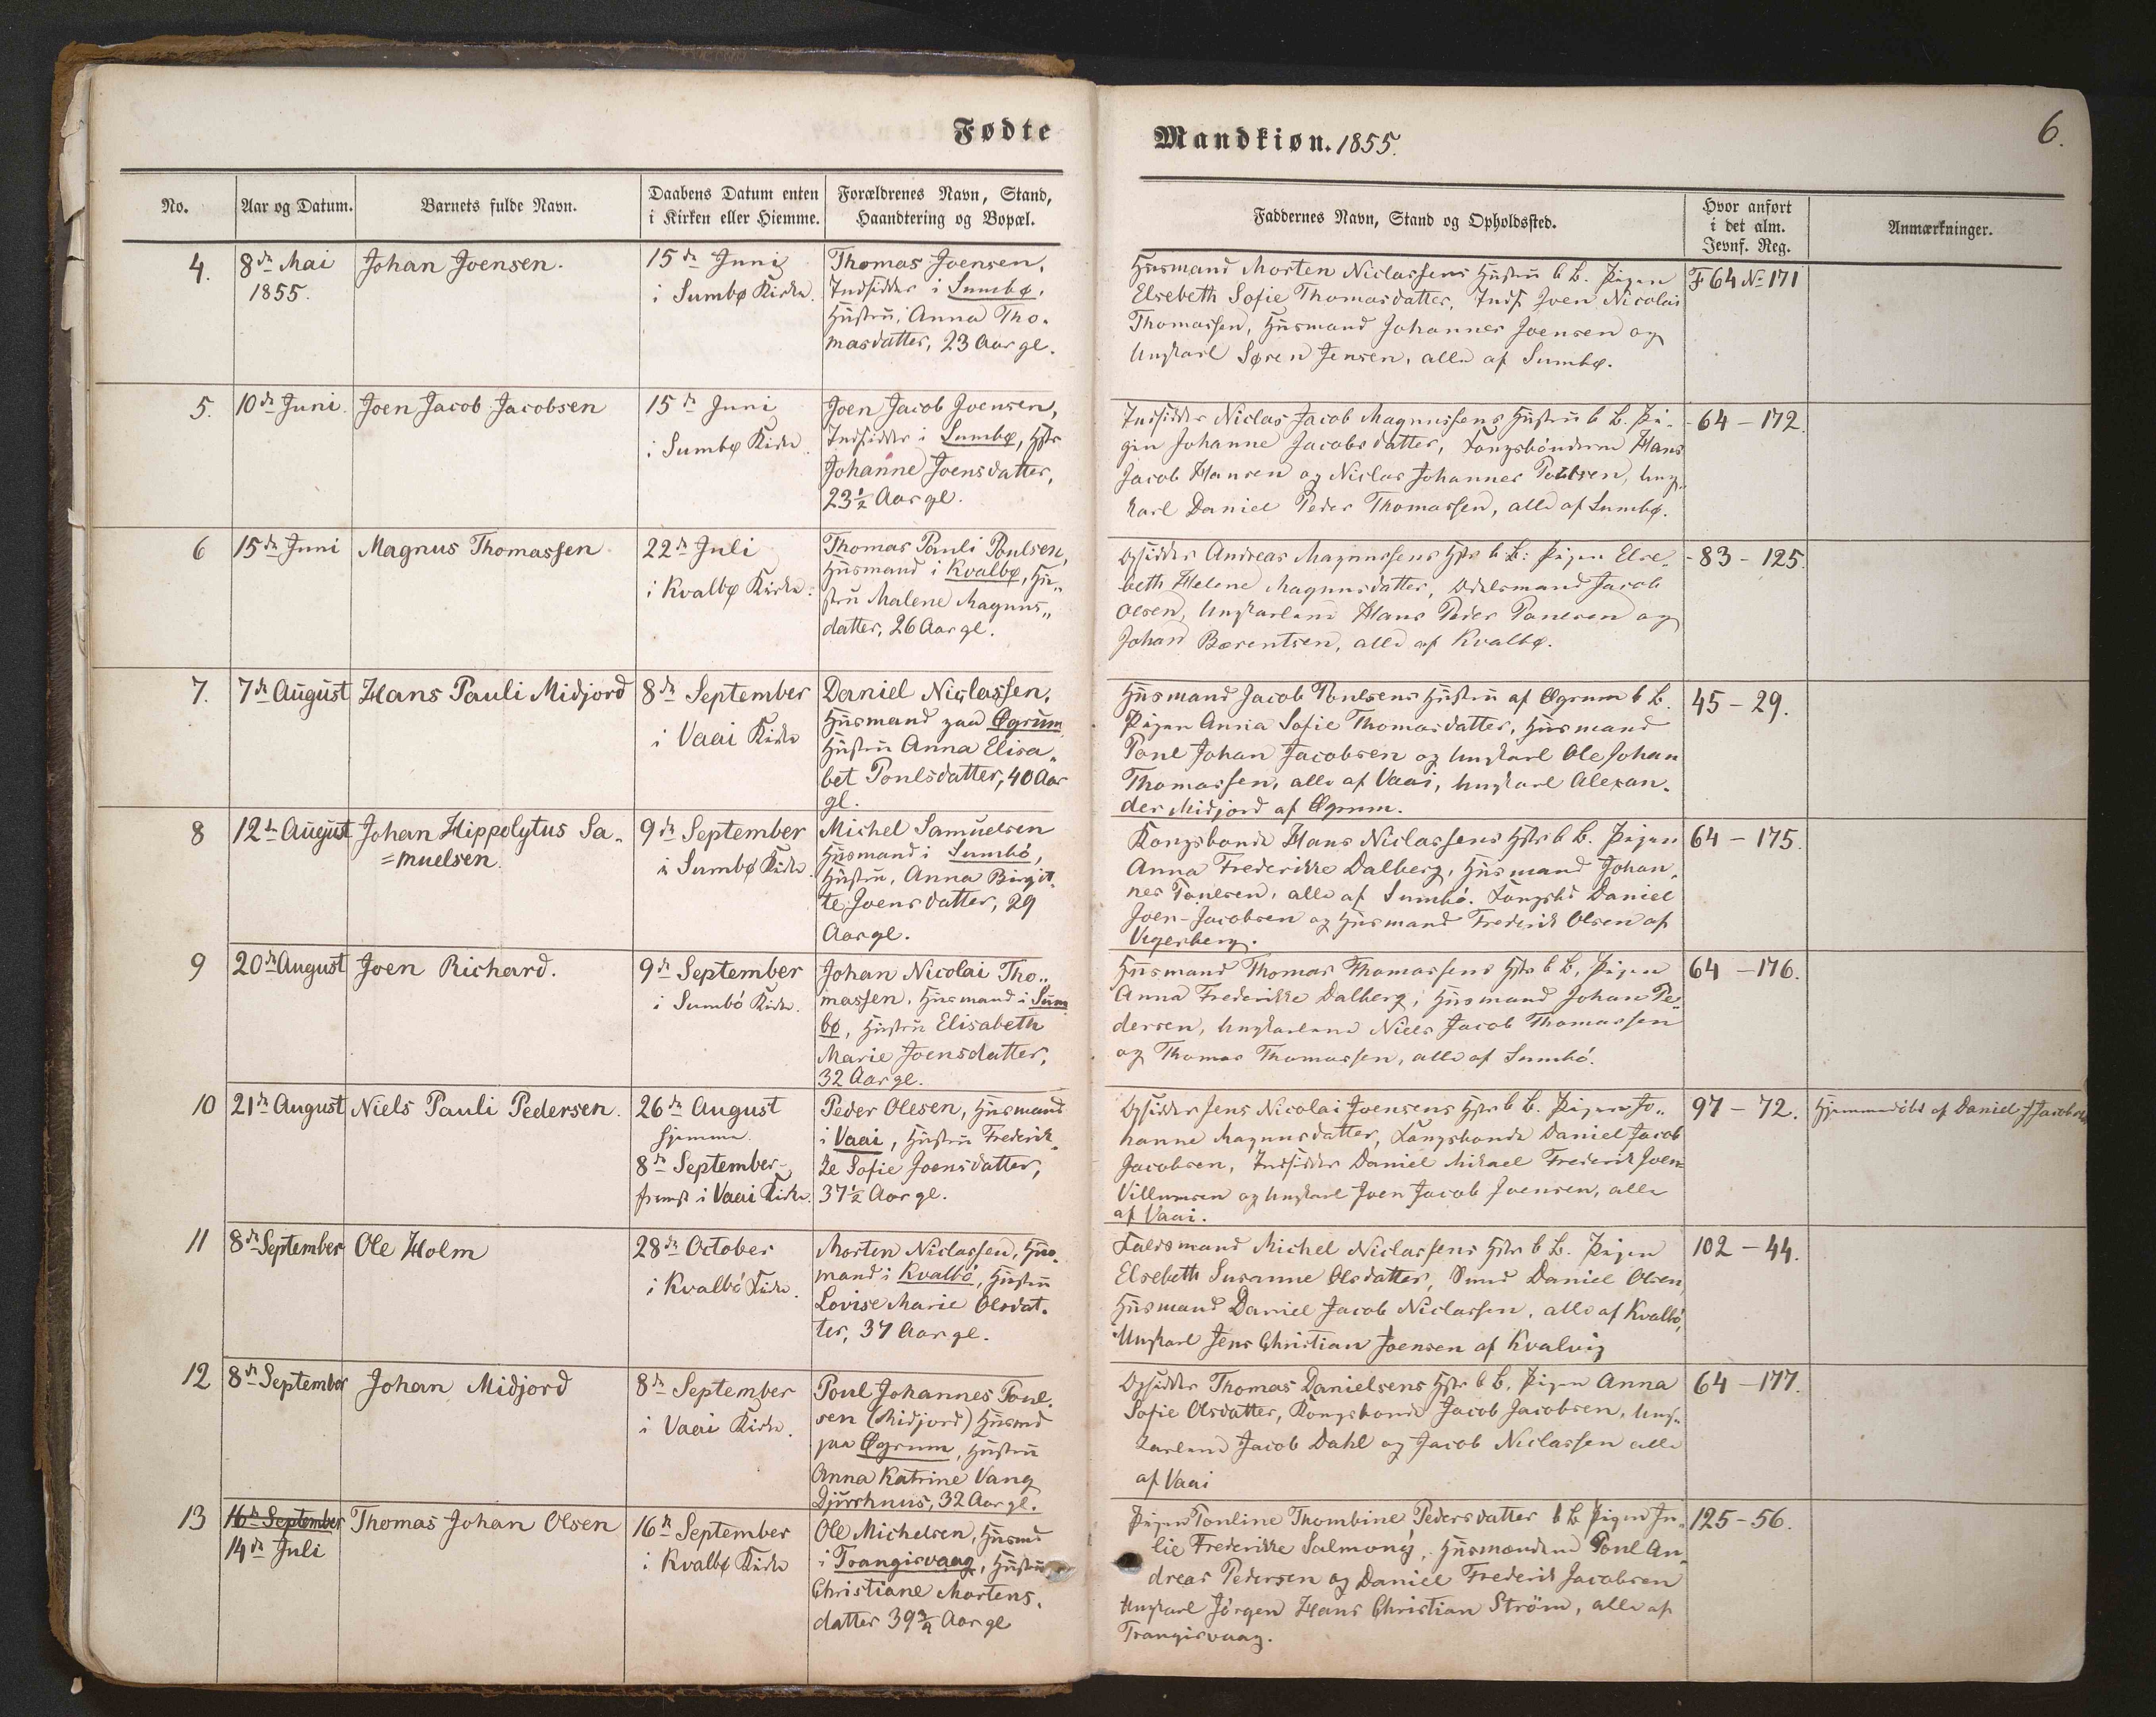 Fødte
Mandkiøn. 1855.
6.
No.
Aar og Datum.
Barnets fulde Navn.
Daabens Datum enten
i Kirken eller Hiemme.
Forældrenes Navn, Stand,
Haandtering og Bopæl.
Faddernes Navn, Stand og Opholdssted.
Hvor anført
i det alm.
Jevnf. Reg.
Anmærkninger.
4.
8de Mai
1855.
Johan Joensen.
15de Juni
i Sumbø Kirke.
Thomas Joensen,
Indsidder i Sumbø.
Hustru, Anna Tho-
masdatter, 23 Aar gl.
Husmand Morten Niclassens Hustru b. B. Pigen
Elsebeth Sofie Thomasdatter, Inds. Joen Nicolai
Thomassen, Husmand Johannes Joensen og
Ungkarl Søren Jensen, alle af Sumbø.
F 64 No 171
5.
10de Juni.
Joen Jacob Jacobsen
15de Juni
i Sumbø Kirke.
Joen Jacob Joensen,
Indsidder i Sumbø, Hstr
Johanne Joensdatter,
23½ Aar gl.
Indsidder Niclas Jacob Magnussens Hustru b. B. Pi-
gen Johanne Jacobsdatter, Kongsbønderne Hans
Jacob Hansen og Niclas Johannes Poulsen, Ung-
karl Daniel Peder Thomassen, alle af Sumbø.
- 64 - 172.
6
15de Juni
Magnus Thomassen
22de Juli
i Kvalbø Kirke.
Thomas Pauli Poulsen,
Husmand i Kvalbø, Hu-
stru Malene Magnus-
datter, 26 Aar gl.
Opsidder Andreas Magnussens Hstr b. B: Pigen Else-
beth Helene Magnusdatter, Odelsmand Jacob
Olsen, Ungkarlene Hans Peder Poulsen og
Johan Bærentsen, alle af Kvalbø.
- 83 - 125.
7.
7de August
Hans Pauli Midjord
8de September
i Vaai Kirke
Daniel Niclassen,
Husmand paa Øgrum
Hustru Anna Elisa-
bet Poulsdatter, 40 Aar
gl.
Husmand Jacob Poulsens Hustru af Øgrum b. B.
Pigen Anna Sofie Thomasdatter, Husmand
Poul Johan Jacobsen og Ungkarl Ole Johan
Thomassen, alle af Vaai, Ungkarl Alexan-
der Midjord af Øgrum.
45 - 29.
8
12te August
Johan Hippolytus Sa-
=muelsen.
9de September
i Sumbø Kirke.
Michel Samuelsen
Husmand i Sumbö,
Hustru, Anna Birgit-
te Joensdatter, 29
Aar gl.
Kongsbonde Hans Niclassens Hstr b. B. Pigen
Anna Frederikke Dalberg, Husmand Johan-
nes Poulsen, alle af Sumbö. Kongsbd Daniel
Joen-Jacobsen og Husmand Frederik Olsen af
64 - 175.
9
20de August
Joen Richard.
9de September
i Sumbö Kirke.
Johan Nicolai Tho-
massen, Husmand i Sum
bø, Hustru Elisabeth
Marie Joensdatter,
32 Aar gl.
Husmand Thomas Thomassens Hstr b. B. Pigen
Anna Frederikke Dalberg, Husmand Johan Pe-
dersen, Ungkarlene Niels Jacob Thomassen
og Thomas Thomassen, alle af Sumbö.
64 - 176.
10
21de August
Niels Pauli Pedersen.
26de August
hjemme.
8de September
fremst i Vaai Kirke.
Peder Olesen, Husmand
i Vaai, Hustru Frederik-
ke Sofie Joensdatter,
37½ Aar gl.
Opsidder Jens Nicolai Joensens Hstr b. B. Pigen Jo-
hanne Magnusdatter, Kongsbonde Daniel Jacob
Jacobsen, Indsidder Daniel Mikael Frederik Joen-
Villumsen og Ungkarl Joen Jacob Joensen, alle
af Vaai.
97 - 72.
Hjemmedöbt af Daniel J Jacobsen
11
8de September
Ole Holm
28de October
i Kvalbö Kirke.
Morten Niclassen, Hus-
mand i Kvalbö, Hustru
Lovise Marie Olsdat-
ter, 37 Aar gl.
Michel Niclassens Hstr b. B. Pigen
Elsebeth Susanne Olsdatter, Smed Daniel Olsen,
Husmand Daniel Jacob Niclassen, alle af Kvalbö,
Ungkarl Jens Christian Joensen af Kvalvig
102 - 44.
12
8de September
Johan Midjord
8de September
i Vaai Kirke.
Poul Johannes Poul-
sen (Midjord) Husmd
paa Øgrum, Hustru
Anna Katrine Vang
Djurrhuus, 32 Aar gl.
Opsidder Thomas Danielsens Hstr b. B. Pigen Anna
Sofie Olsdatter, Kongsbonde Jacob Jacobsen, Ung-
karlene Jacob Dahl og Jacob Niclassen alle
af Vaai
64 - 177.
13
16de September
14de Juli
Thomas Johan Olsen
16de September
i Kvalbø Kirke
Ole Michelsen, Husmd
i Trangisvaag, Hustru
Christiane Mortens-
datter 39¾ Aar gl
Pigen Pouline Thombine Pedersdatter b. B. Pigen Ju-
lie Frederikke Salmonÿ, Husmændene Poul An-
dreas Pedersen og Daniel Frederik Jacobsen
Ungkarl Jörgen Hans Christian Ström, alle af
Trangisvaag.
125 - 56.